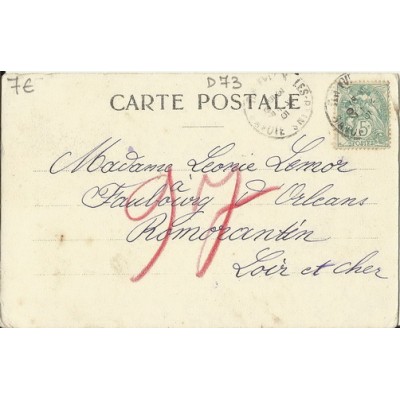 7€
D73
CARTE POSTALE
LES-BAINS
SAVOIE
5
Madame Leonie Lemor
à
Faubourg d Orleans
Romorantin
Loir et Cher
97